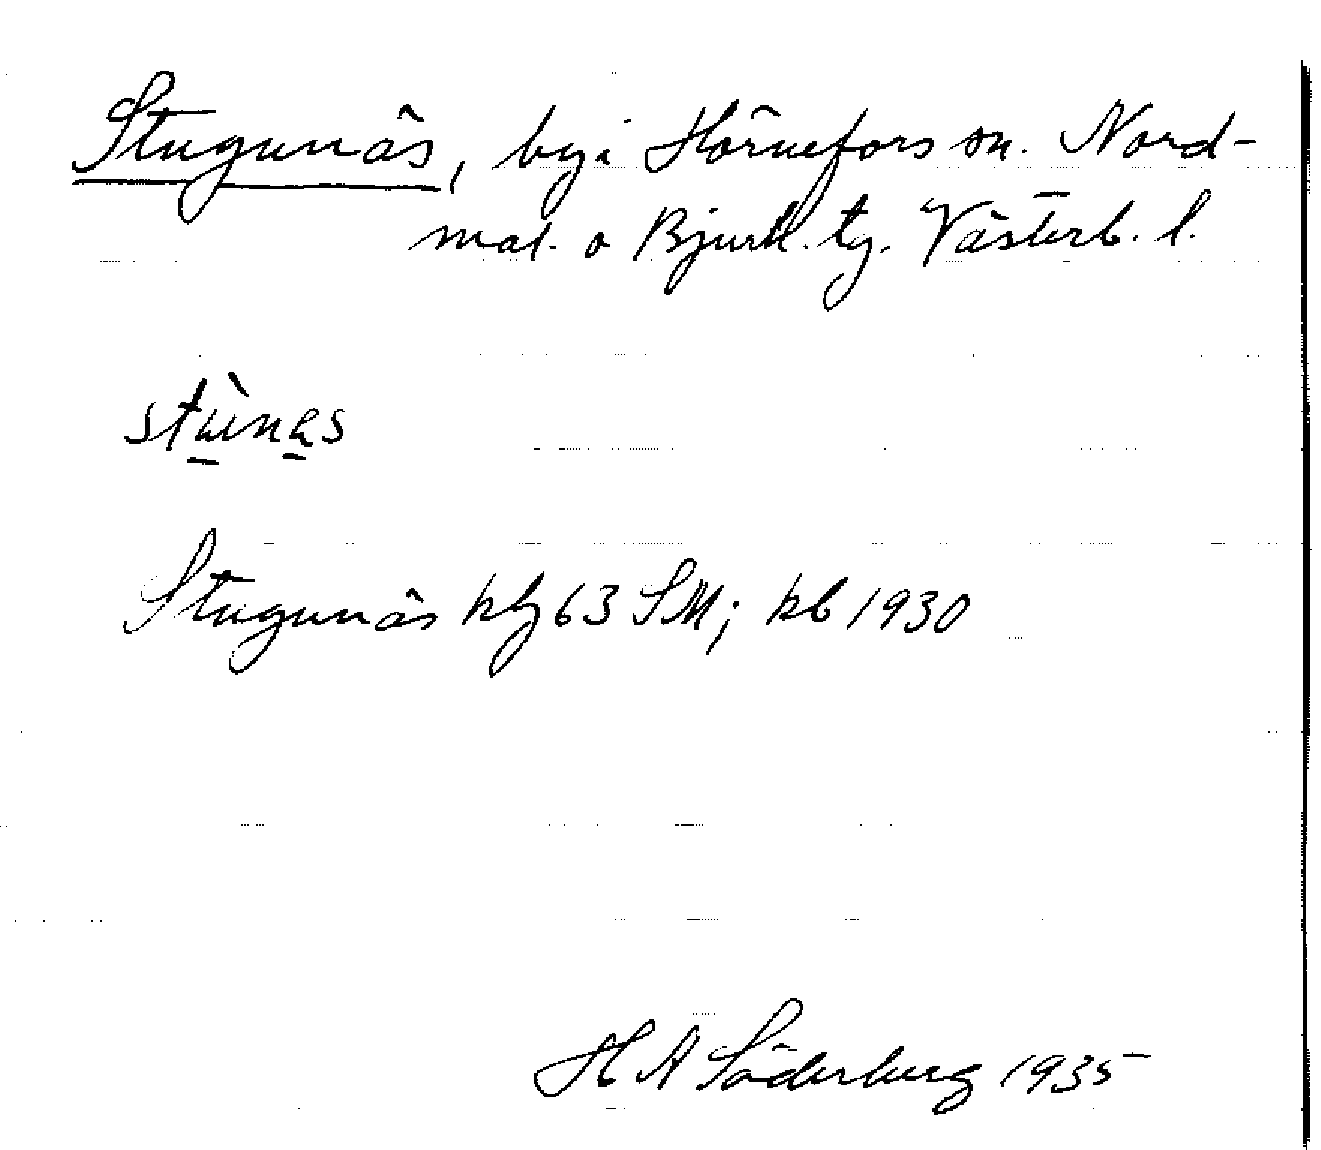 Stugunäs, by i Hörnefors sn. Nord-
mal. o Bjurh. tg. Västerb. l.
Stugunäs kbg 63 SM; kb 1930
H A Söderberg 1935